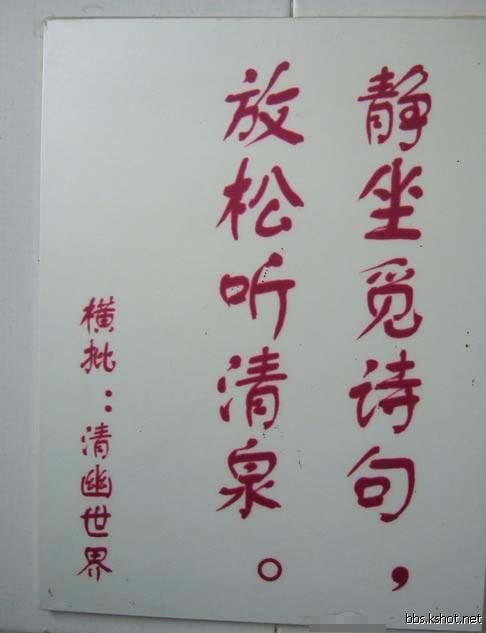 静坐觅诗句，
放松听清泉。
横批：清幽世界
bbs.kshot.net